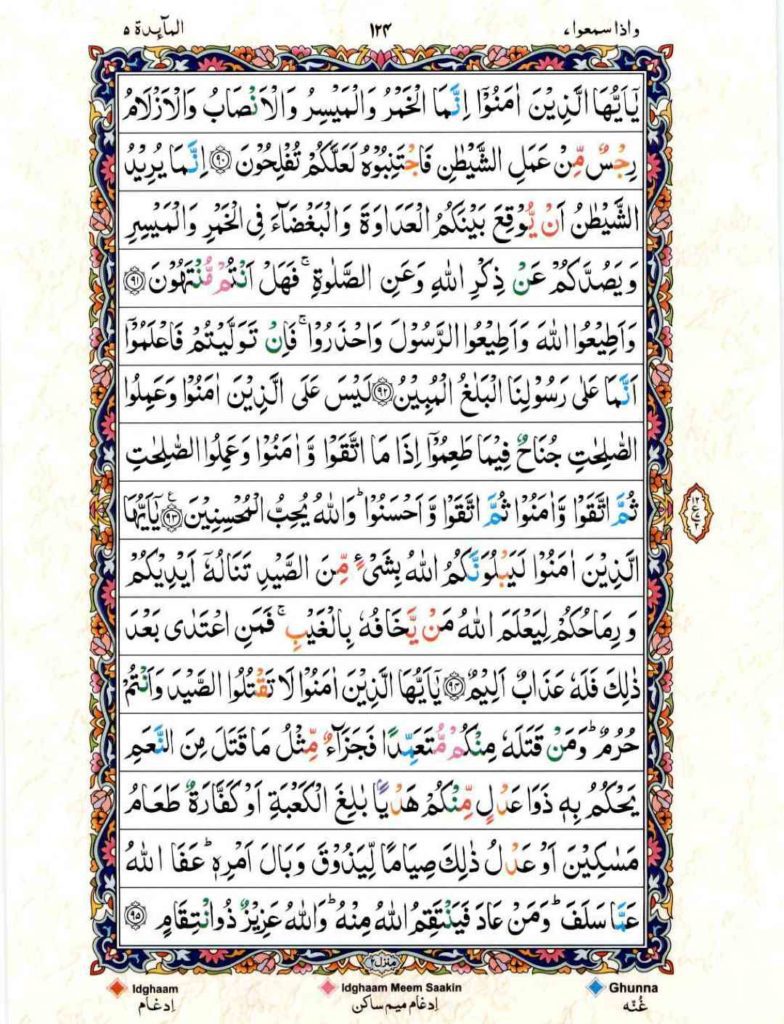 واذا سمعوا،
۱۲۴
المآىِٕدة ۵
یٰۤاَیُّهَا الَّذِیْنَ اٰمَنُوْۤا اِنَّمَا الْخَمْرُ وَالْمَیْسِرُ وَالْاَنْصَابُ وَالْاَزْلَامُ
رِجْسٌ مِّنْ عَمَلِ الشَّیْطٰنِ فَاجْتَنِبُوْهُ لَعَلَّكُمْ تُفْلِحُوْنَ ۝۹۰ اِنَّمَا یُرِیْدُ
الشَّیْطٰنُ اَنْ یُّوْقِعَ بَیْنَكُمُ الْعَدَاوَةَ وَالْبَغْضَآءَ فِی الْخَمْرِ وَالْمَیْسِرِ
وَیَصُدَّكُمْ عَنْ ذِكْرِ اللّٰهِ وَعَنِ الصَّلٰوةِ ۚ فَهَلْ اَنْتُمْ مُّنْتَهُوْنَ ۝۹۱
وَاَطِیْعُوا اللّٰهَ وَاَطِیْعُوا الرَّسُوْلَ وَاحْذَرُوْا ۚ فَاِنْ تَوَلَّیْتُمْ فَاعْلَمُوْۤا
اَنَّمَا عَلٰی رَسُوْلِنَا الْبَلٰغُ الْمُبِیْنُ ۝۹۲ لَیْسَ عَلَی الَّذِیْنَ اٰمَنُوْا وَعَمِلُوا
الصّٰلِحٰتِ جُنَاحٌ فِیْمَا طَعِمُوْۤا اِذَا مَا اتَّقَوْا وَّاٰمَنُوْا وَعَمِلُوا الصّٰلِحٰتِ
ثُمَّ اتَّقَوْا وَّاٰمَنُوْا ثُمَّ اتَّقَوْا وَّاَحْسَنُوْا ؕ وَاللّٰهُ یُحِبُّ الْمُحْسِنِیْنَ ۝۹۳ یٰۤاَیُّهَا
الَّذِیْنَ اٰمَنُوْا لَیَبْلُوَنَّكُمُ اللّٰهُ بِشَیْءٍ مِّنَ الصَّیْدِ تَنَالُهٗۤ اَیْدِیْكُمْ
وَرِمَاحُكُمْ لِیَعْلَمَ اللّٰهُ مَنْ یَّخَافُهٗ بِالْغَیْبِ ۚ فَمَنِ اعْتَدٰی بَعْدَ
ذٰلِكَ فَلَهٗ عَذَابٌ اَلِیْمٌ ۝۹۴ یٰۤاَیُّهَا الَّذِیْنَ اٰمَنُوْا لَا تَقْتُلُوا الصَّیْدَ وَاَنْتُمْ
حُرُمٌ ؕ وَمَنْ قَتَلَهٗ مِنْكُمْ مُّتَعَمِّدًا فَجَزَآءٌ مِّثْلُ مَا قَتَلَ مِنَ النَّعَمِ
یَحْكُمُ بِهٖ ذَوَا عَدْلٍ مِّنْكُمْ هَدْیًۢا بٰلِغَ الْكَعْبَةِ اَوْ كَفَّارَةٌ طَعَامُ
مَسٰكِیْنَ اَوْ عَدْلُ ذٰلِكَ صِیَامًا لِّیَذُوْقَ وَبَالَ اَمْرِهٖ ؕ عَفَا اللّٰهُ
عَمَّا سَلَفَ ؕ وَمَنْ عَادَ فَیَنْتَقِمُ اللّٰهُ مِنْهُ ؕ وَاللّٰهُ عَزِیْزٌ ذُوانْتِقَامٍ ۝۹۵
منزل ۲
Idghaam
Idghaam Meem Saakin
Ghunna
اِدغام
اِدغام میم ساکن
غُنّه